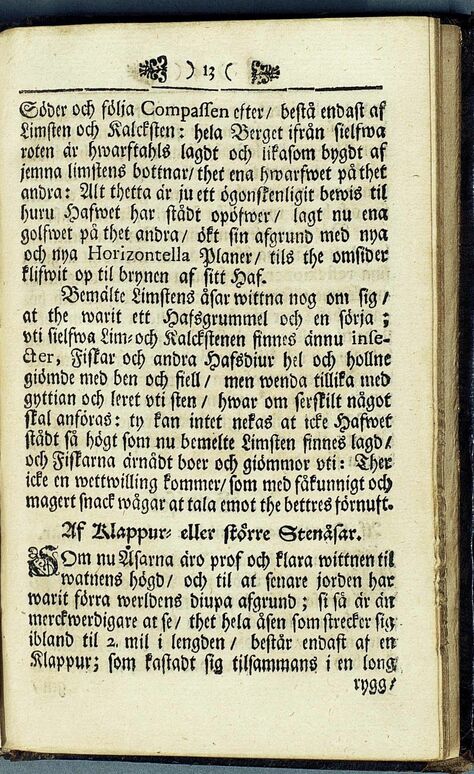 ) 13 (
Söder och följa Compassen efter/ bestå endast af
Limsten och Kalcksten: hela Berget ifrån sielfwa
roten är hwarftahls lagdt och likasom bygdt af
jemna limstens bottnar/ thet ena hwarfwet på thet
andra: Alt thetta är ju ett ögonskenligit bewis til
huru Hafwet har städt opöfwer/ lagt nu ena
golfwet på thet andra/ ökt sin afgrund med nya
och nya Horizontella Planer/ tils the omsider
klifwit op til brynen af sitt Haf.
Bemälte Limstens åsar wittna nog om sig/
at the warit ett Hafsgrummel och en sörja;
vti sielfwa Lim- och Kalckstenen finnes ännu inse-
cter, Fiskar och andra Hafsdiur hel och hollne
giömde med ben och fiell/ men wenda tillika med
gyttian och leret vti sten/ hwar om serskilt något
skal anföras: ty kan intet nekas at icke Hafwet
städt så högt som nu bemelte Limsten finnes lagd/
och Fiskarna ärnådt boer och giömmor vti: Ther
icke en wettwilling kommer/ som med fåkunnigt och
magert snack wågar at tala emot the bettres förnuft.
Af Klappur- eller större Stenåsar.
SOm nu Åsarna äro prof och klara wittnen til
watnens högd/ och til at senare jorden har
warit förra werldens diupa afgrund; si så är än
merckwerdigare at se/ thet hela åsen som strecker sig
ibland til 2. mil i lengden/ består endast af en
Klappur; som kastadt sig tilsammans i en long
rygg/